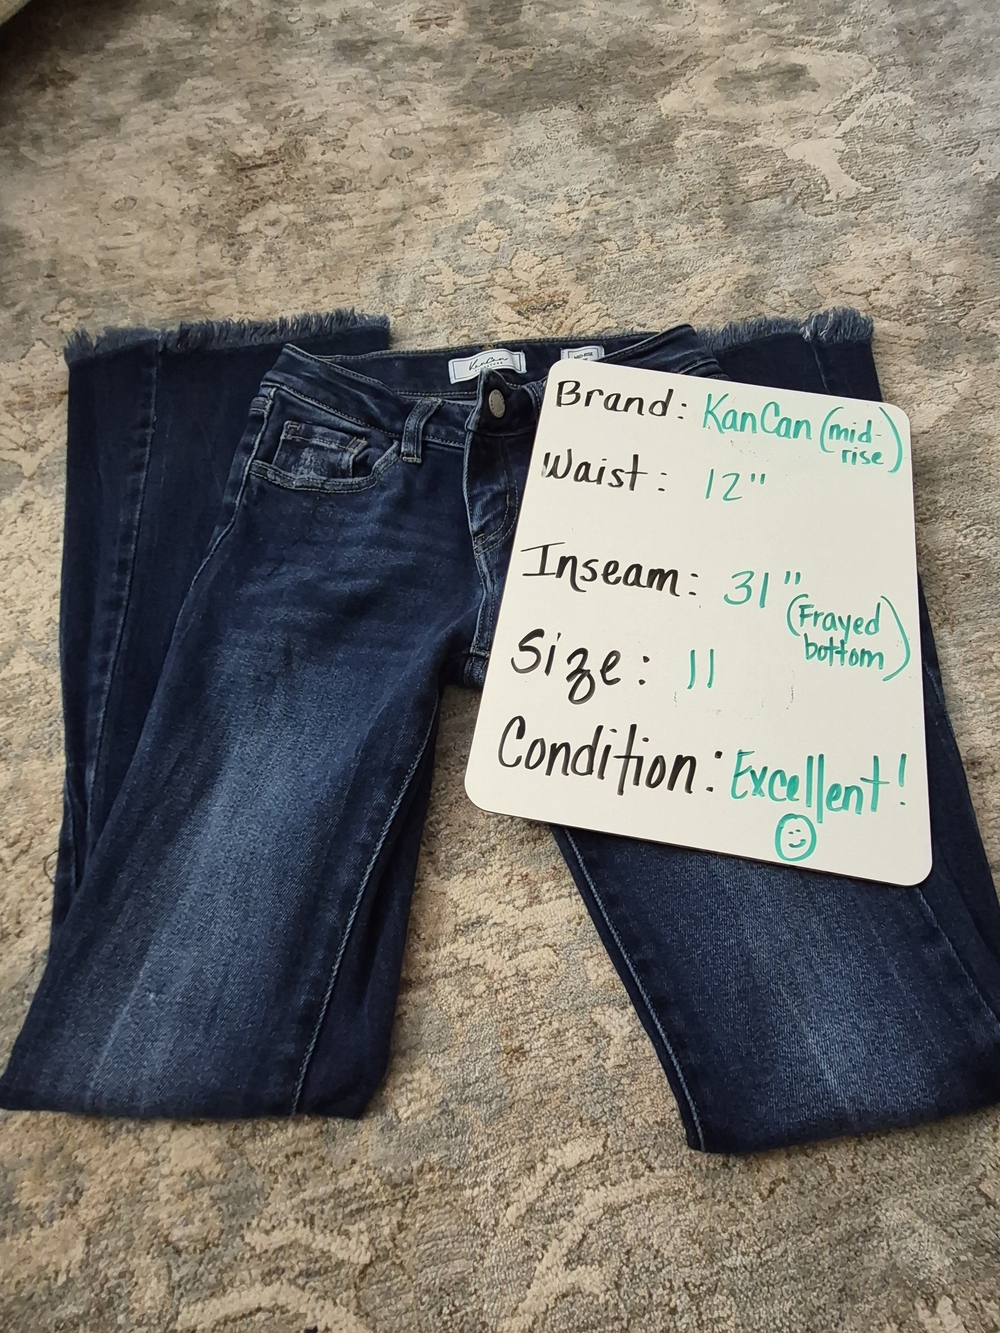 KanCan
MID-RISE
Brand: KanCan (mid-rise)
Waist: 12"
Inseam: 31" (Frayed bottom)
Size: 11
Condition: Excellent!